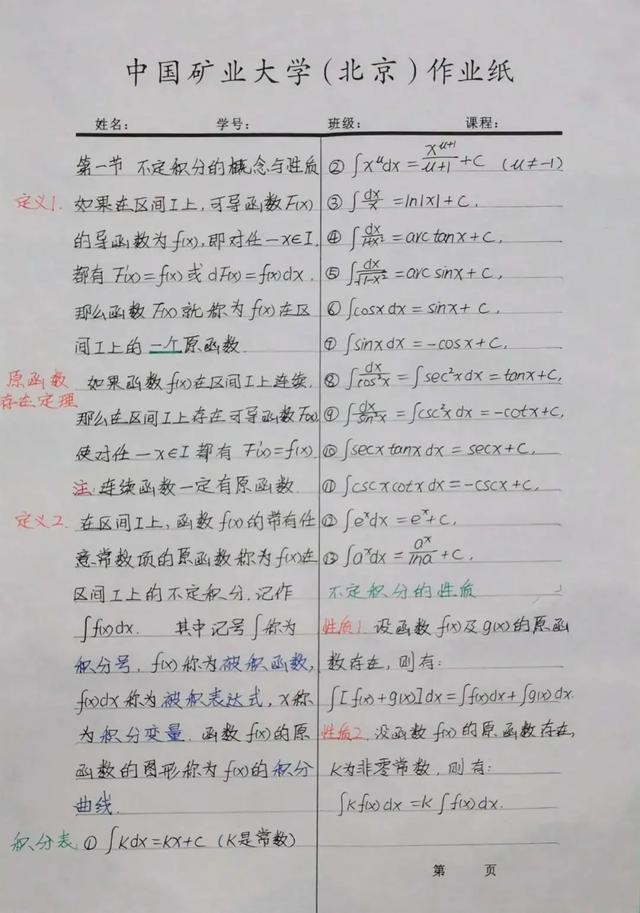 中国矿业大学(北京)作业纸
姓名: 学号: 班级: 课程:
第一节 不定积分的概念与性质
定义1. 如果在区间I上,可导函数F(x)
的导函数为f(x),即对任一x∈I,
都有F'(x)=f(x)或dF(x)=f(x)dx.
那么函数F(x)就称为f(x)在区
间I上的一个原函数.
原函数存在定理 如果函数f(x)在区间I上连续,
那么在区间I上存在可导函数F(x),
使对任一x∈I都有F'(x)=f(x).
注:连续函数一定有原函数.
定义2. 在区间I上,函数f(x)的带有任
意常数项的原函数称为f(x)在
区间I上的不定积分.记作
∫f(x)dx. 其中记号∫称为
积分号,f(x)称为被积函数,
f(x)dx称为被积表达式,x称
为积分变量.函数f(x)的原
函数的图形称为f(x)的积分
曲线.
积分表:① ∫Kdx=Kx+C (K是常数)
② ∫x^u dx = x^(u+1)/(u+1) + C (u≠-1)
③ ∫dx/x = ln|x|+C.
④ ∫dx/(1+x²) = arctanx+C.
⑤ ∫dx/√(1-x²) = arcsinx+C.
⑥ ∫cosxdx = sinx+C.
⑦ ∫sinxdx = -cosx+C.
⑧ ∫dx/cos²x = ∫sec²xdx = tanx+C.
⑨ ∫dx/sin²x = ∫csc²xdx = -cotx+C.
⑩ ∫secxtanxdx = secx+C.
⑪ ∫cscxcotxdx = -cscx+C.
⑫ ∫e^x dx = e^x+C.
⑬ ∫a^x dx = a^x/lna + C.
不定积分的性质
性质1. 设函数f(x)及g(x)的原函
数存在,则有:
∫[f(x)+g(x)]dx=∫f(x)dx+∫g(x)dx.
性质2. 设函数f(x)的原函数存在,
K为非零常数,则有:
∫Kf(x)dx=K∫f(x)dx.
第 页